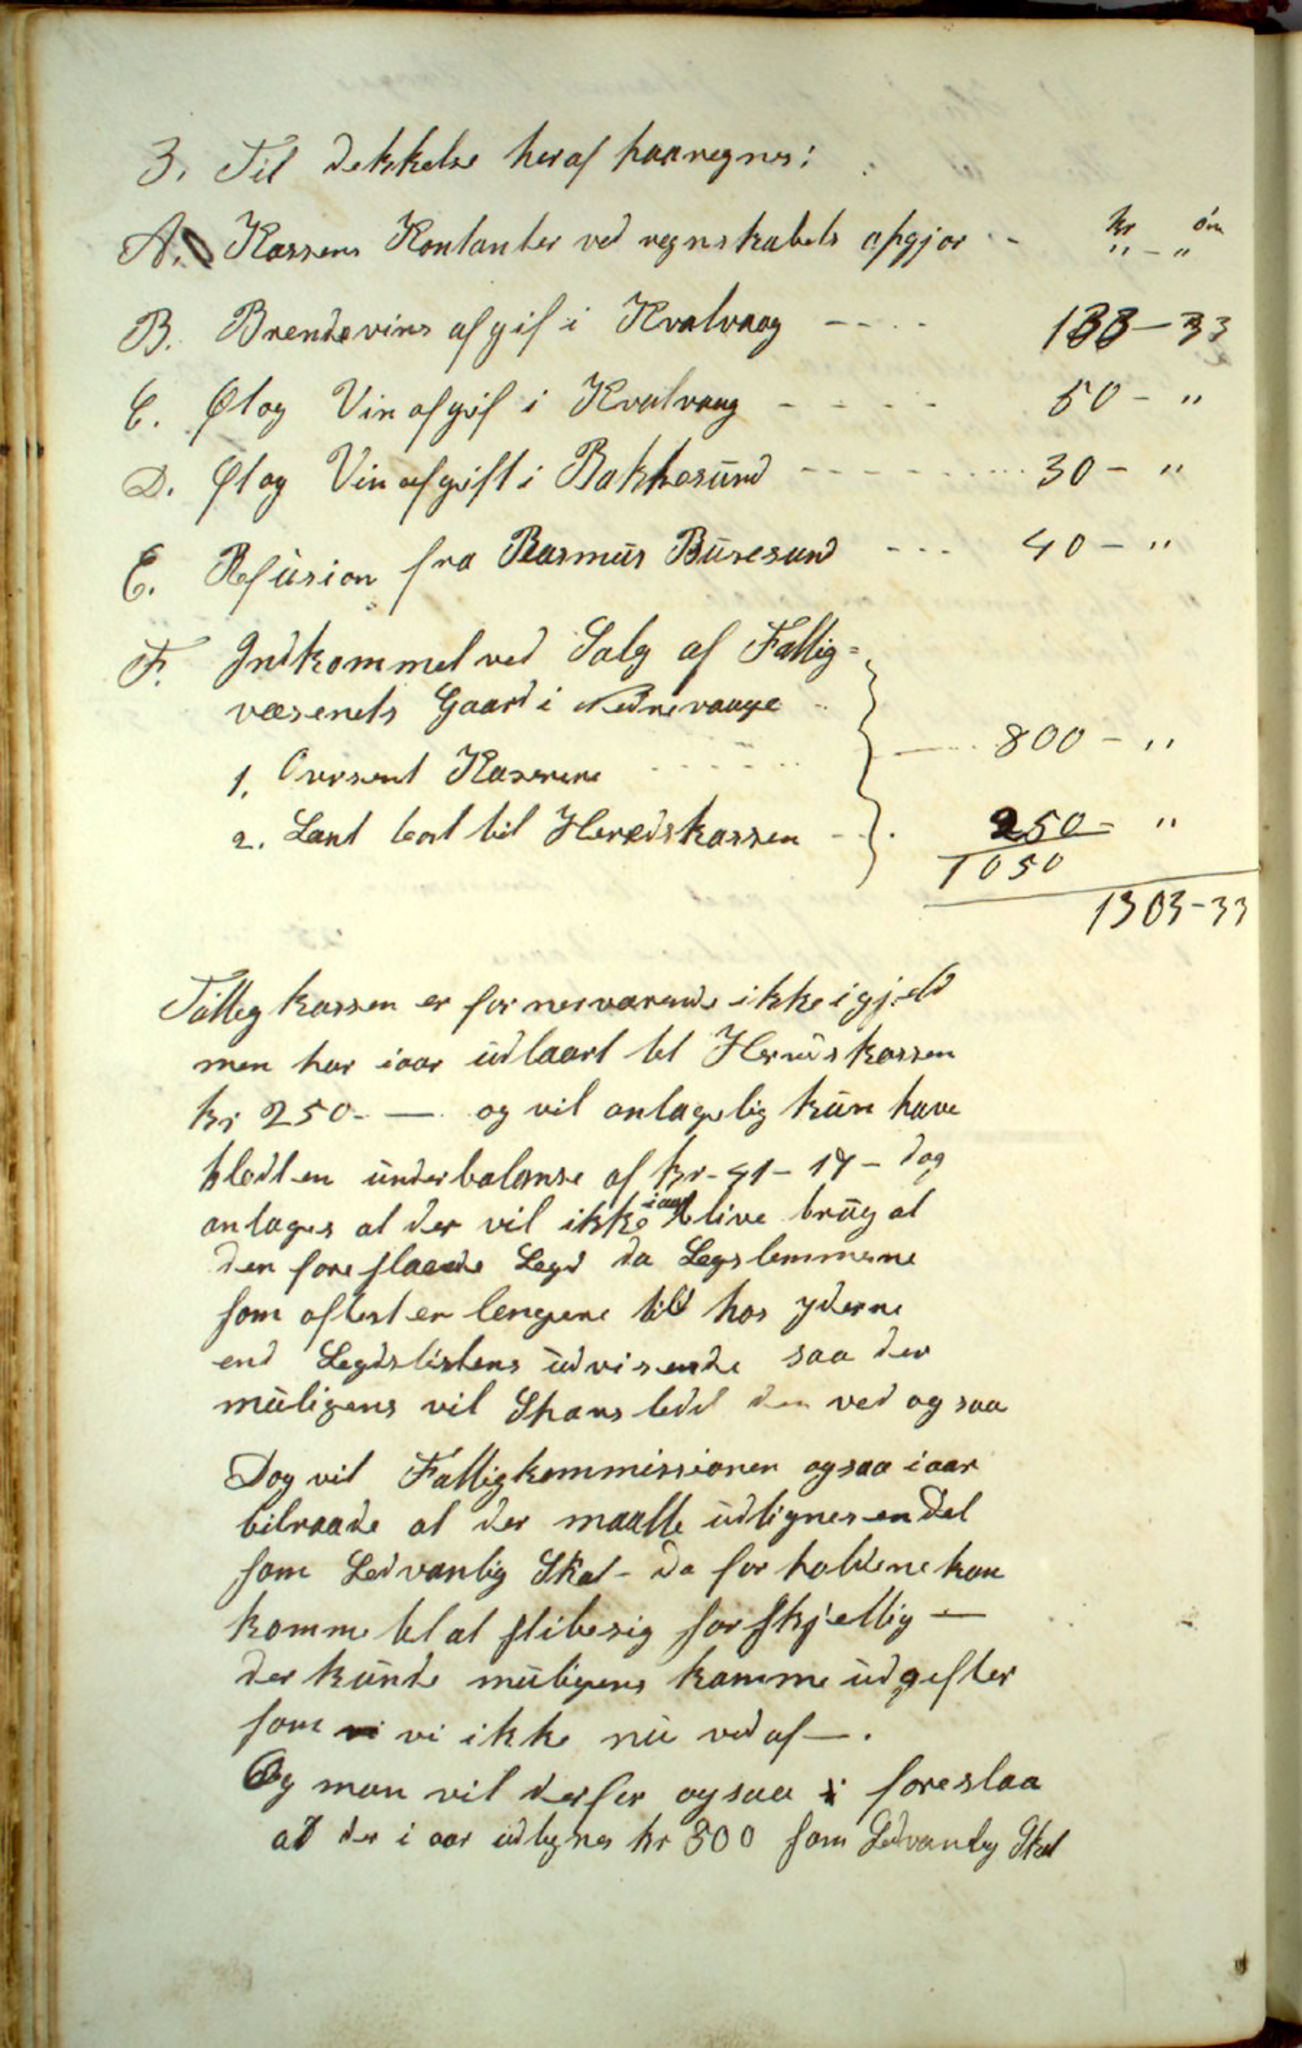 3. Til dekkelse heraf paaregnes:
A. Kassens Kontanter ved regnskabets opgjør - kr øre
" - "
B. Brendevins afgif i Kvalvaag - - - - 133 - 33
C. Øl og Vin afgif i Kvalvaag - - - - - 50 - "
D. Øl og Vin afgift i Bakkesund - - - - - - - 30 - "
E. Refusion fra Rasmus Buresund - - - 40 - "
F. Indkommet ved Salg af Fattig=
væsenets Gaard i Nedrevaage
1. Oversent Kaserere - - - - - - 800 - "
2. Lant bort til Heredskassen - - 250 - "
1050
1303-33
Fattegkassen er for nerværende ikke i gjeld
men har i aar udlaant tel Heredskassen
kr 250 - — og vil antagelig kun have
bledt en underbalanse af kr - 41 - 17 - dog
antages at der vil ikke i aar blive brug at
den foreslaaede Legd da Legslemmerne
som oftest er lengere tid hos yderne
end Legdslistens udvisende saa der
muligens vil Spares ledt der ved ogsaa
Dog vil Fattigkommissionen ogsaa i aar
tilraade at der maatte udlignes en Del
som Sedvanlig Skat - da forholdene kan
komme tel at stile sig forskjellig —
der kunde muligens komme udgefter
som vi ikke nu ved af —.
Og man vil derfor ogsaa foreslaa
at der i aar udlignes kr 300 som Sedvanleg Skat